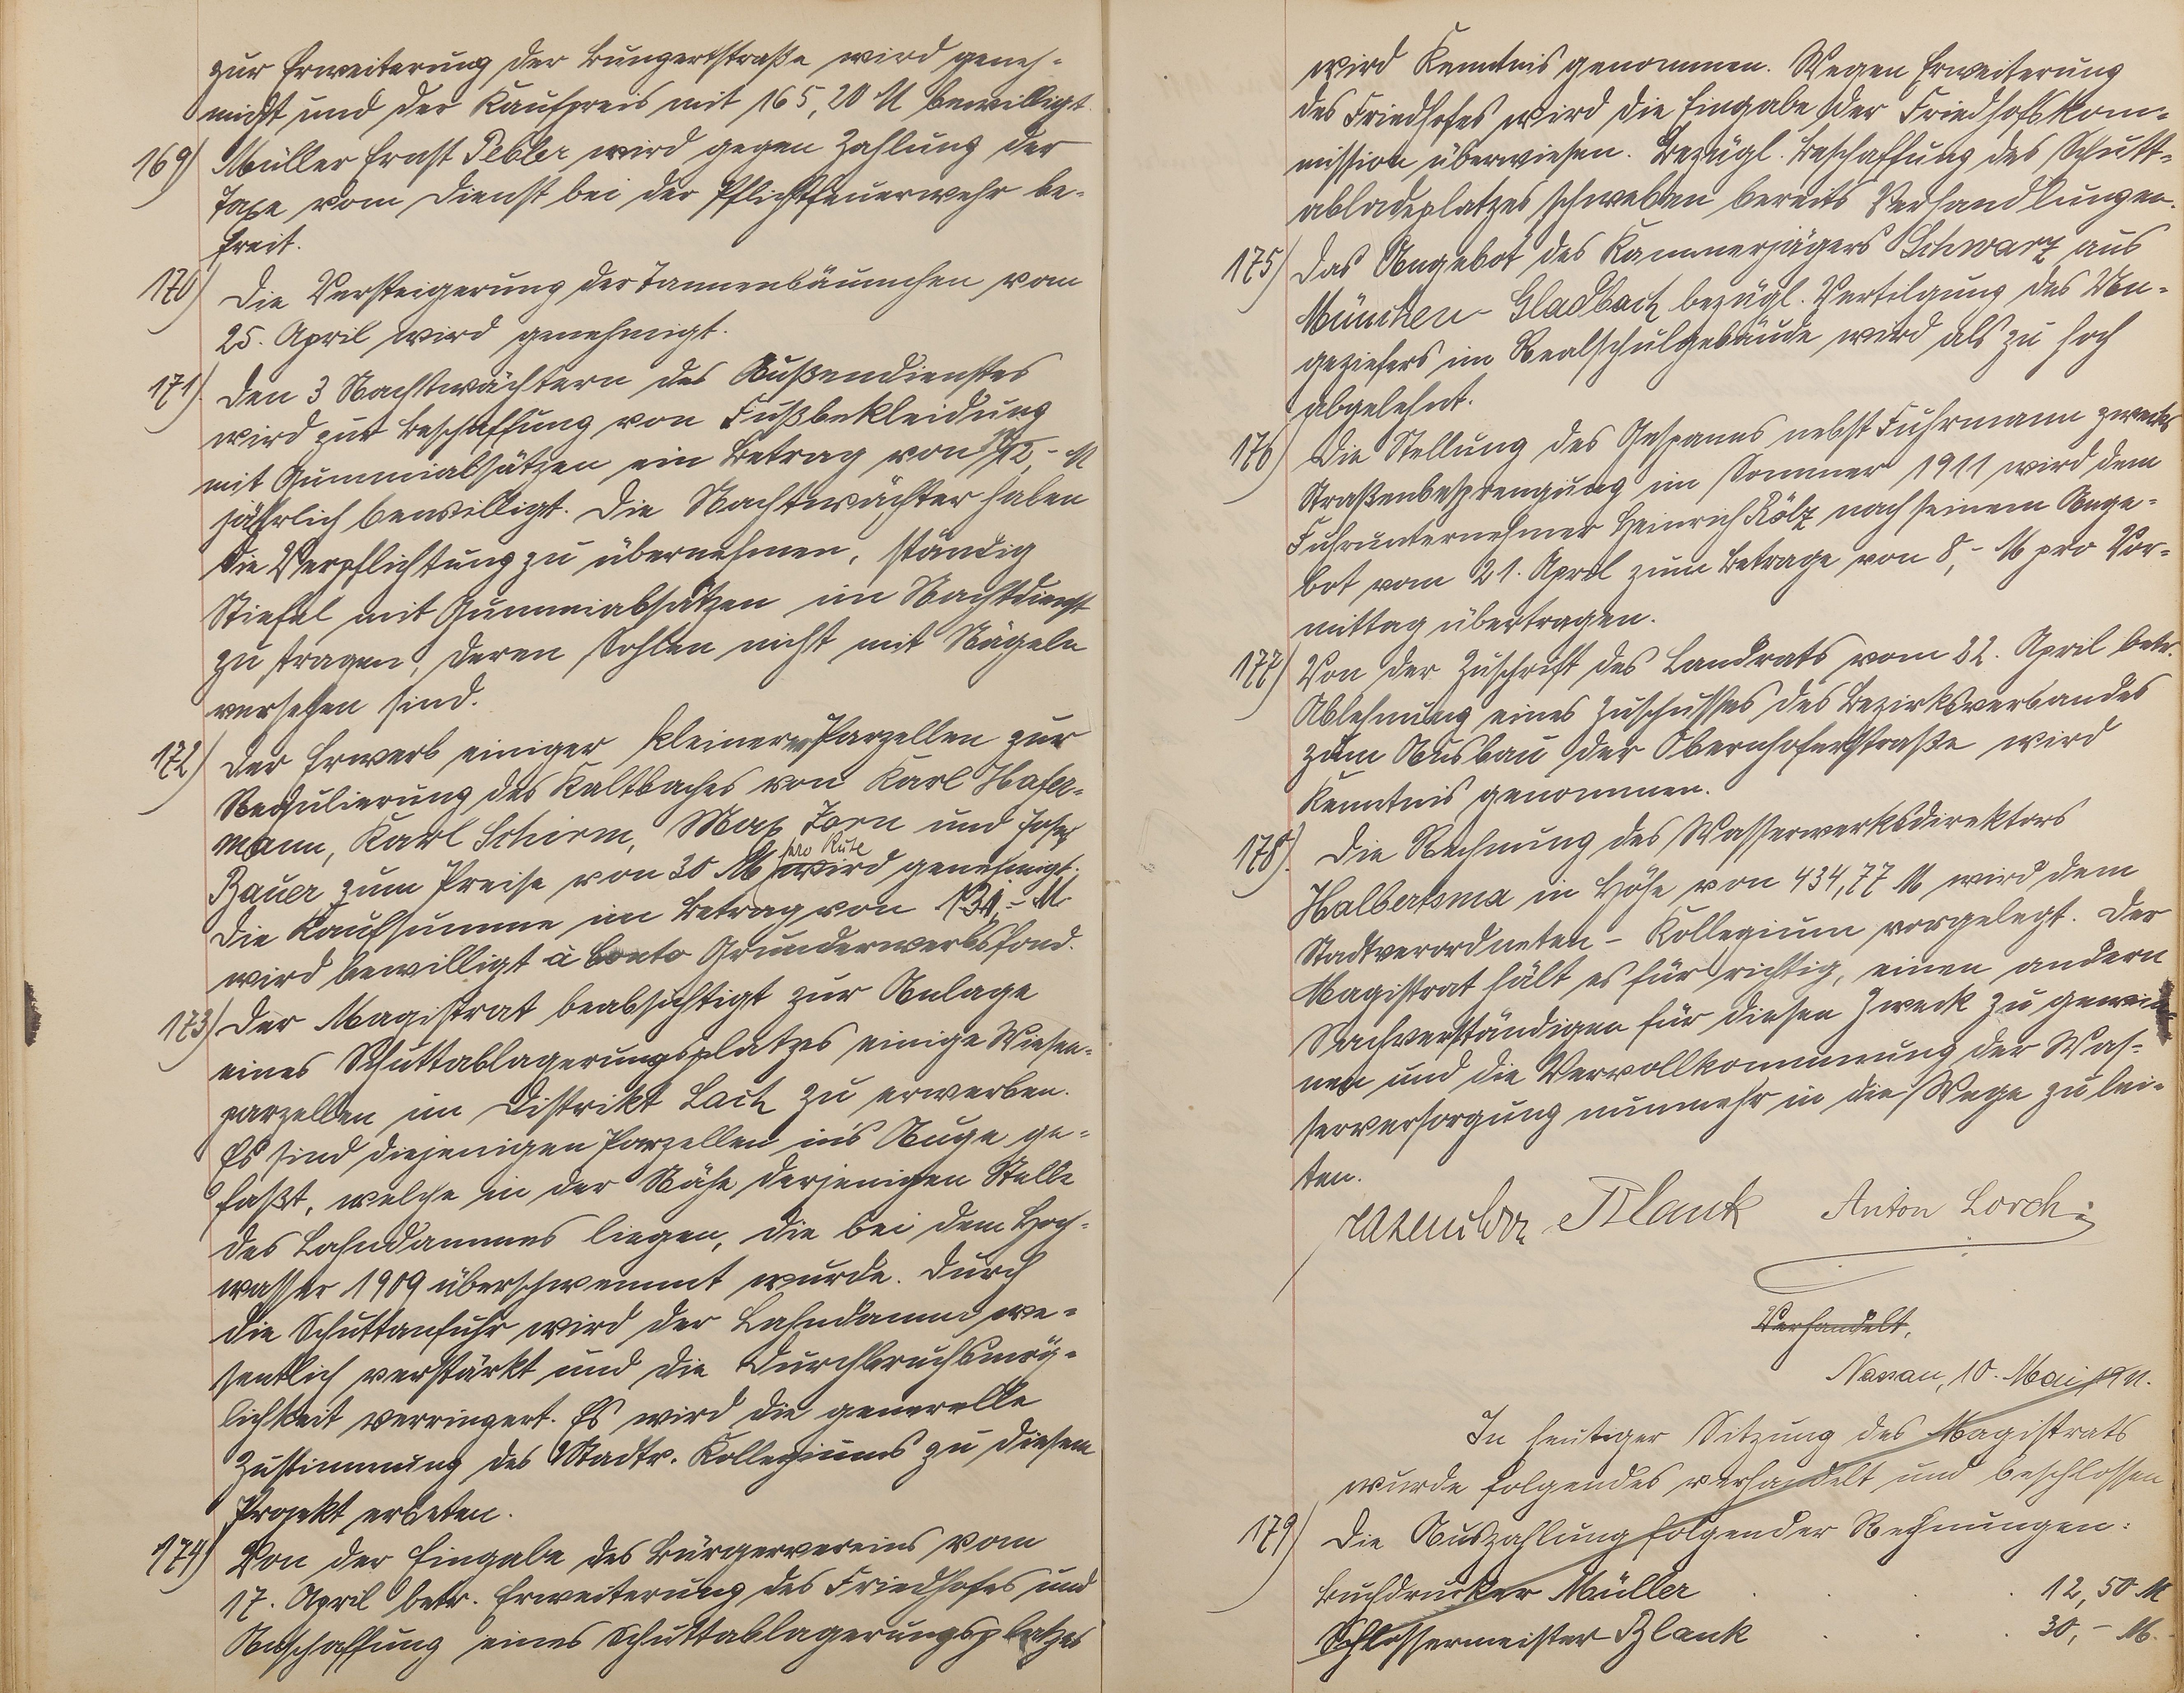 zur Erweiterung der Bungertstraße wird geneh-
migt und der Kaufpreis mit 165,20 M bewilligt.
169) Müller Ernst Pebler wird gegen Zahlung der
Taxe vom Dienst bei der Pflichtfeuerwehr be-
freit.
170) Die Versteigerung der Tannenbäumchen vom
25. April wird genehmigt.
171) Den 3 Nachtwächtern des Außendienstes
wird zur Beschaffung von Fußbekleidung
mit Gummiabsätzen ein Betrag von 12,- M
jährlich bewilligt. Die Nachtwächter haben
die Verpflichtung zu übernehmen, ständig
Stiefel mit Gummiabsätzen im Nachtdienst
zu tragen, deren Sohlen nicht mit Nägeln
versehen sind.
172) Der Erwerb einiger kleiner Parzellen zur
Regulierung des Kaltbaches von Karl Hafer-
mann, Karl Schirm, Max Torn und Josef
Bauer zum Preise von 30 M pro Rute wird genehmigt.
Die Kaufsumme im Betrag von M
wird bewilligt à Conto Grunderwerbsfond.
173) Der Magistrat beabsichtigt zur Anlage
eines Schuttablagerungsplatzes einige Wiesen-
parzellen im Distrikt Lach zu erwerben.
Es sind diejenigen Parzellen in's Auge ge-
faßt, welche in der Nähe derjenigen Stelle
des Lahndammes liegen, die bei dem Hoch-
wasser 1909 überschwemmt wurde. Durch
die Schuttanfuhr wird der Lahndamm we-
sentlich verstärkt und die Durchbruchsmög-
lichkeit verringert. Es wird die generelle
Zustimmung des Stadtv. Kollegiums zu diesem
Projekt erbeten.
174) Von der Eingabe des Bürgervereins vom
17. April betr. Erweiterung des Friedhofes und
Anschaffung eines Schuttablagerungsplatzes
wird Kenntnis genommen. Wegen Erweiterung
des Friedhofes wird die Eingabe der Friedhofskom-
mission überwiesen. Bezügl. Beschaffung des Schutt-
abladeplatzes schweben bereits Verhandlungen.
175) Das Angebot des Kammerjägers Schwarz aus
München-Gladbach bezügl. Vertilgung des Un-
geziefers im Realschulgebäude wird als zu hoch
abgelehnt.
176) Die Stellung des Gespanns nebst Fuhrmann zwecks
Straßenbesprengung im Sommer 1911 wird dem
Fuhrunternehmer Heinrich Kölz nach seinem Ange-
bot vom 21. April zum Betrage von 8,- M pro Vor-
mittag übertragen.
177) Von der Zuschrift des Landrats vom 22. April betr.
Ablehnung eines Zuschusses des Bezirksverbandes
zum Ausbau der Obernhoferstraße wird
Kenntnis genommen.
178) Die Rechnung des Wasserwerksdirektors
Halbertsma in Höhe von 434,77 M wird dem
Stadtverordneten-Kollegium vorgelegt. Der
Magistrat hält es für richtig, einen andern
Sachverständigen für diesen Zweck zu gewin-
nen und die Vervollkommnung der Was-
serversorgung nunmehr in die Wege zu lei-
ten.
Blank Anton Lorch
Verhandelt,
Nassau, 10. Mai 1911.
In heutiger Sitzung des Magistrats
wurde folgendes verhandelt und beschlossen
179) Die Auszahlung folgender Rechnungen:
Buchdrucker Müller . . . 12,50 M
Schlossermeister Blank . . . 30,- M.